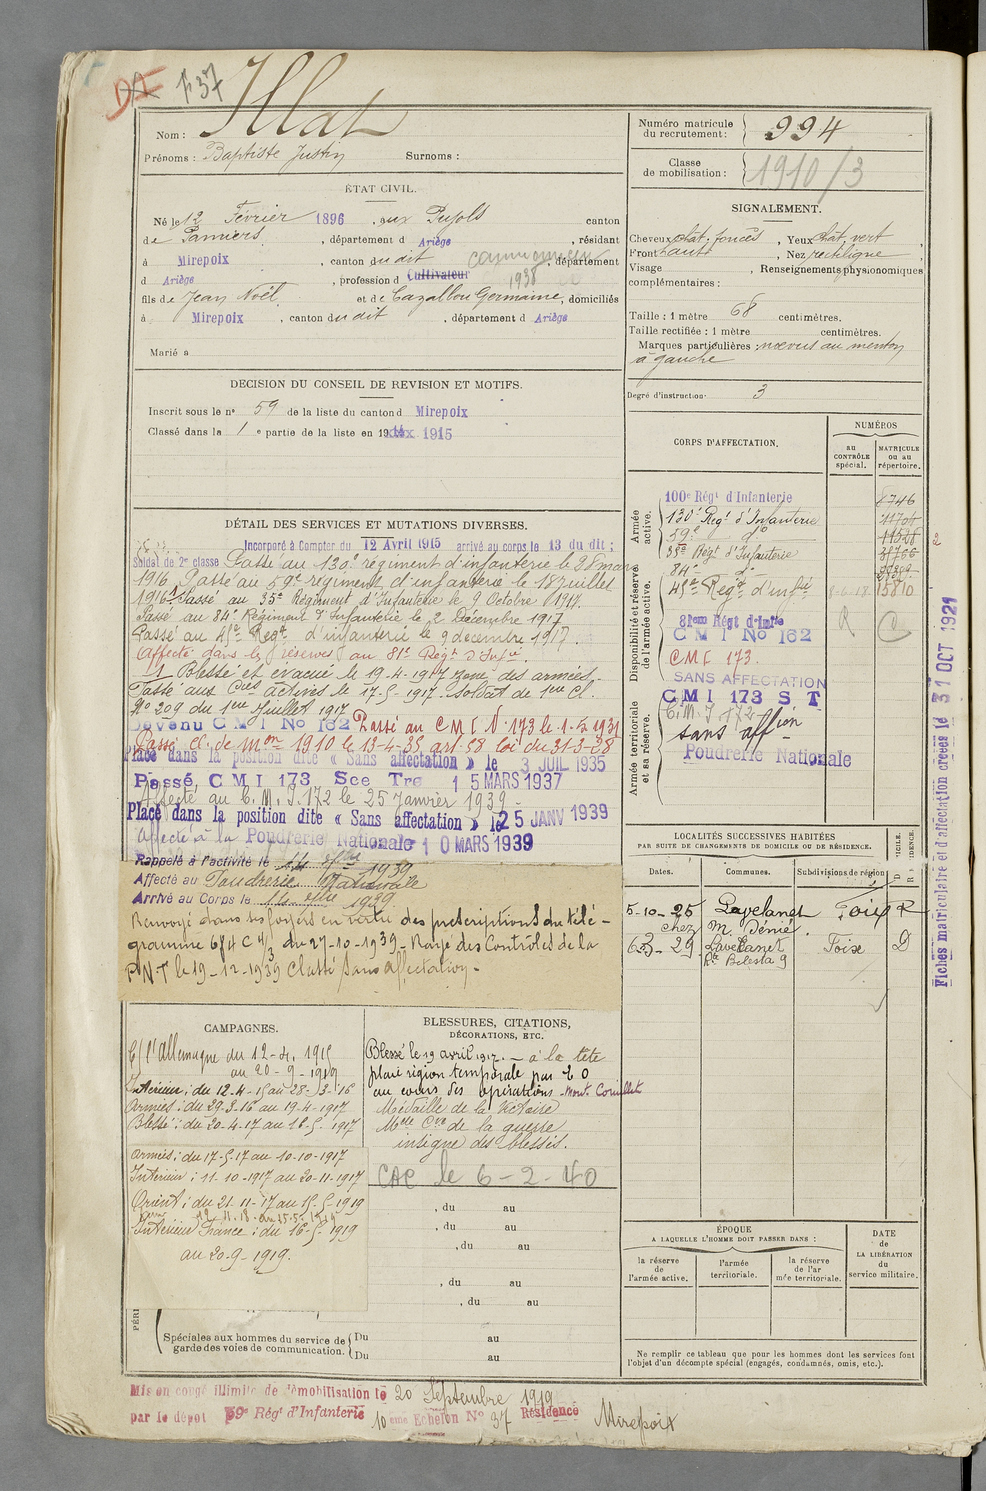 F
DA 137
Nom : Illat
Prénoms : Baptiste Justin Surnoms :
ÉTAT CIVIL.
Né le 12 Février 1896 , aux Pujols canton
de Pamiers , département d Ariège , résidant
à Mirepoix , canton du dit , département
d Ariège , profession d Cultivateur 1938
fils de Jean Noël et de Cazallou Germaine, domiciliés
à Mirepoix , canton du dit , département d Ariège
Marié a
DECISION DU CONSEIL DE REVISION ET MOTIFS.
Inscrit sous le n° 59 de la liste du canton d Mirepoix
Classé dans la 1 e partie de la liste en 1915
DÉTAIL DES SERVICES ET MUTATIONS DIVERSES.
Incorporé à Compter du 12 Avril 1915 arrivé au corps le 13 du dit ;
Soldat de 2e classe Passé au 130e régiment d'infanterie le 28 mars
1916 Passé au 59e régiment d'infanterie le 18 juillet
1916 Passé au 35e Régiment d'Infanterie le 9 Octobre 1917.
Passé au 84e Régiment d'Infanterie le 2 Décembre 1917
Passé au 45e Regt d'infanterie le 9 décembre 1917.
Affecté dans les réserves au 81e Régt d'Infie
1 Blessé et évacué le 19-4-1917 zone des armées.
Passé aux Cies actives le 17-5-1917. Soldat de 1ere Cl.
N° 209 du 1er Juillet 1917
Devenu C M I No 162 Passé au C M I N° 173 le 1-5-1931
Passé cl. de mon 1910 le 13-4-35 art. 58 loi du 31-3-28
Placé dans la position dite « Sans affectation » le 3 JUIL 1935
Passé C M I 173 Sce Tre 15 MARS 1937
Affecté au C. M. I. 172 le 25 Janvier 1939
Placé dans la position dite « Sans affectation » le 25 JANV 1939
Affecté à la Poudrerie Nationale 10 MARS 1939
Rappelé à l'activité le 1939
Affecté au Poudrerie Nationale
Arrivé au Corps le 1939
Renvoyé dans ses foyers en vertu des prescriptions du télé-
gramme 684 C 4/3 du 27-10-1939 - Rayé des Contrôles de la
P.N.T le 19-12-1939 Classé Sans affectation -
CAMPAGNES.
C/ l'allemagne du 12-4-1915
au 20-9-1919
Intérieur : du 12-4-15 au 28-3-16
Armées : du 29-3-16 au 19-4-1917
Blessé : du 20-4-17 au 16-5-1917
Armées : du 17-5-17 au 10-10-1917
Intérieur : 11-10-1917 au 20-11-1917
Orient : du 21-11-17 au 15-5-1919
Intérieur France : du 16-5-1919
au 20-9-1919.
Spéciales aux hommes du service de garde des voies de communication. Du au
Du au
BLESSURES, CITATIONS,
DÉCORATIONS, ETC.
Blessé le 19 avril 1917. - à la tête
plaie région temporale par E O
au cours des opérations - Mont Cornillet
Médaille de la Victoire
Mlle Cve de la guerre
insigne des blessés.
CAC le 6-2-40
, du au
, du au
, du au
, du au
, du au
Numéro matricule
du recrutement : 994
Classe
de mobilisation : 1910/3
SIGNALEMENT.
Cheveux chât. foncés , Yeux chât. vert
Front haut , Nez rectiligne
Visage , Renseignements physionomiques
complémentaires :
Taille : 1 mètre 68 centimètres.
Taille rectifiée : 1 mètre centimètres.
Marques particulières : nœvus au menton
à gauche
Degré d'instruction : 3
CORPS D'AFFECTATION.
NUMÉROS
AU CONTRÔLE spécial.
MATRICULE OU AU répertoire.
Armée active.
100e Régt d'Infanterie 8746
130e Regt d'Infanterie 11704
59e do 11528
35e Régt d'Infanterie
84e do
45e Regt d'infie 15810
Disponibilité et réserve de l'armée active.
81eme Régt d'Infie
C M I No 162 R
CMI 173.
SANS AFFECTATION
Armée territoriale et sa réserve.
CMI 173 S T
C. M. I 172
sans affon
Poudrerie Nationale
LOCALITÉS SUCCESSIVES HABITÉES
PAR SUITE DE CHANGEMENTS DE DOMICILE OU DE RÉSIDENCE.
Dates. Communes. Subdivisions de région
5-10-25 Lavelanet Foix R
chez M. Dénié
29 Lavelanet Foix D
Rte Belesta 9
ÉPOQUE
A LAQUELLE L'HOMME DOIT PASSER DANS :
la réserve de l'armée active.
l'armée territoriale.
la réserve de l'armée territoriale.
DATE de LA LIBÉRATION du service militaire.
Ne remplir ce tableau que pour les hommes dont les services font
l'objet d'un décompte spécial (engagés, condamnés, omis, etc.).
Fiches matriculaire et d'affectation créées le 31 OCT 1921
Mis en congé illimité de démobilisation le 20 Septembre 1919
par le dépot 59e Régt d'Infanterie 10 eme Echelon No 37 Résidence Mirepoix